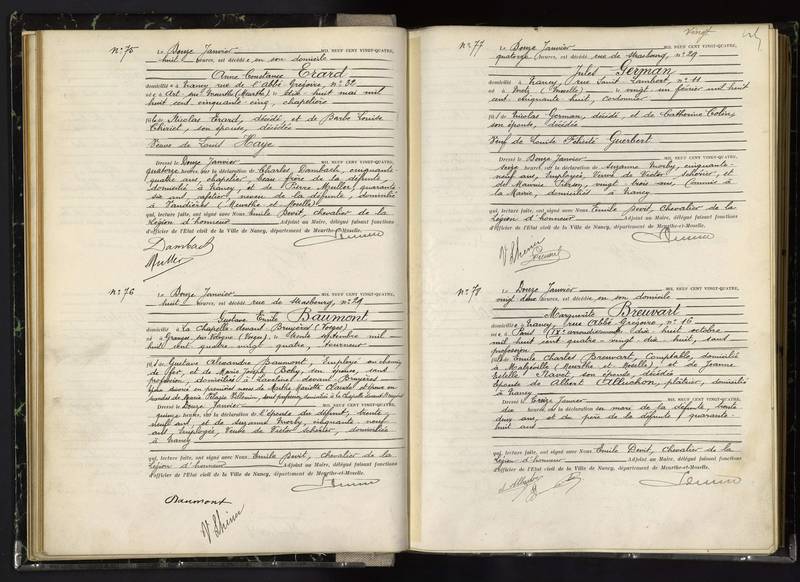 N° 75 Le Douze Janvier MIL NEUF CENT VINGT-QUATRE,
huit heures, est décédée, en son domicile
Anne Constance Erard
domiciliée à Nancy rue de l'abbé Grégoire, n° 32
née à Art sur Meurthe (Meurthe), le dix huit mai mil
huit cent cinquante-cinq, chapelière
fille de Nicolas Erard, décédé, et de Barbe Louise
son épouse, décédée
Veuve de Louis Haye
Dressé le Douze Janvier MIL NEUF CENT VINGT-QUATRE,
quatorze heures, sur la déclaration de Charles Dambach, cinquante
quatre ans, chapelier, beau-frère de la défunte,
domicilié à Nancy, et de Pierre Muller, quarante
six ans, neveu de la défunte, domicilié
à Vandières (Meurthe et Moselle)
qui, lecture faite, ont signé avec Nous Emile Devit, chevalier de la
Légion d'honneur Adjoint au Maire, délégué faisant fonctions
d'officier de l'Etat civil de la Ville de Nancy, département de Meurthe-et-Moselle.
Dambach
Muller
N° 76 Le Douze Janvier MIL NEUF CENT VINGT-QUATRE,
huit heures, est décédé rue de Strasbourg, n° 29
Gustave Emile Baumont
domicilié à La Chapelle devant Bruyères (Vosges)
né à Granges sur Vologne (Vosges), le trente septembre mil
huit cent quatre vingt quatre, tourneur
fils de Gustave Alexandre Baumont, Employé au chemin
de fer, et de Marie Joseph Bohy, son épouse, sans
profession, domiciliés à Laveline devant Bruyères
Veuf divorcé en premières noces de Marthe Mariette Claudel et époux en
secondes de Marie sans profession, domiciliée à la Chapelle devant Bruyères
Dressé le Douze Janvier MIL NEUF CENT VINGT-QUATRE,
quinze heures, sur la déclaration de l'épouse du défunt, trente
neuf ans, et de Suzanne Morby, cinquante neuf
ans, employée, Veuve de Victor domiciliée
à Nancy
qui, lecture faite, ont signé avec Nous Emile Devit, Chevalier de la
Légion d'honneur Adjoint au Maire, délégué faisant fonctions
d'officier de l'Etat civil de la Ville de Nancy, département de Meurthe-et-Moselle.
Baumont
Vingt
N° 77 Le Douze Janvier MIL NEUF CENT VINGT-QUATRE,
quatorze heures, est décédé rue de Strasbourg, n° 29
Jules German
domicilié à Nancy, rue Saint Lambert, n° 11
né à Metz (Moselle) le vingt un février mil huit
cent cinquante huit, cordonnier
fils de Nicolas German, décédé, et de Catherine Colin,
son épouse, décédée
Veuf de Louise Félicité Guerbert
Dressé le Douze Janvier MIL NEUF CENT VINGT-QUATRE,
seize heures, sur la déclaration de Suzanne Morby, cinquante-
neuf ans, Employée, Veuve de Victor et
de Maurice vingt-trois ans, Commis à
la Mairie, domiciliés à Nancy
qui, lecture faite, ont signé avec Nous Emile Devit, Chevalier de la
Légion d'honneur Adjoint au Maire, délégué faisant fonctions
d'officier de l'Etat civil de la Ville de Nancy, département de Meurthe-et-Moselle.
N° 78 Le Douze Janvier MIL NEUF CENT VINGT-QUATRE,
vingt deux heures, est décédée en son domicile
Marguerite Breuvart
domiciliée à Nancy, rue Abbé Grégoire, n° 16
née à Paris arrondissement dix-huit octobre
mil huit cent quatre-vingt dix-huit, sans
profession
fille de Emile Charles Breuvart, Comptable, domicilié
à Malzéville (Meurthe et Moselle), et de Jeanne
Estelle Ravet, son épouse, décédée
Epouse de Albert Alluchon, plâtrier, domicilié
à Nancy
Dressé le Treize Janvier MIL NEUF CENT VINGT-QUATRE,
dix heures, sur la déclaration du mari de la défunte, trente
deux ans, et du père de la défunte, quarante-
huit ans
qui, lecture faite, ont signé avec Nous Emile Devit, Chevalier de la
Légion d'honneur Adjoint au Maire, délégué faisant fonctions
d'officier de l'Etat civil de la Ville de Nancy, département de Meurthe-et-Moselle.